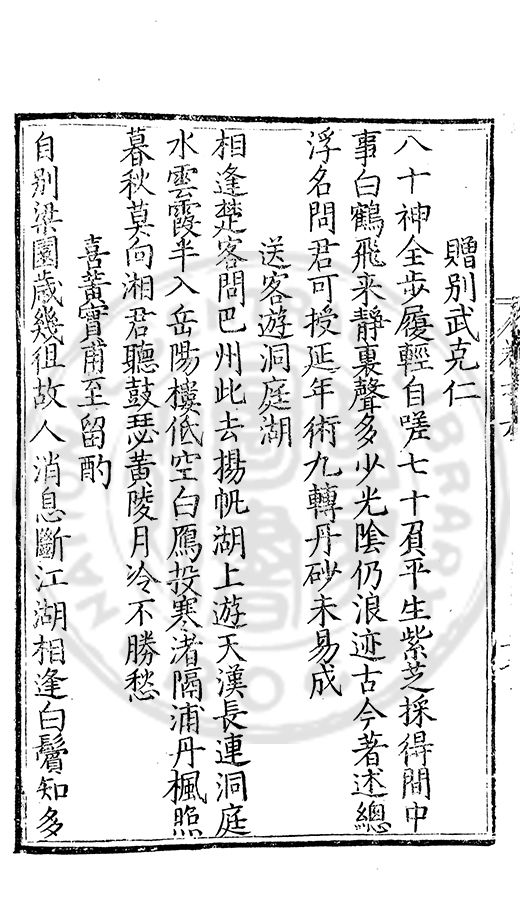 贈別武克仁
八十神全步履輕自嗟七十負平生紫芝採得間中
事白鶴飛来靜裏聲多少光陰仍浪迹古今著述總
浮名問君可授延年術九轉丹砂未易成
送客遊洞庭湖
相逢楚客問巴州此去揚帆湖上遊天漢長連洞庭
水雲霞半入岳陽樓低空白鴈投寒渚隔浦丹楓照
暮秋莫向湘君聽鼓瑟黃陵月冷不勝愁
喜黃實甫至留酌
自别梁園歲幾徂故人消息斷江湖相逢白鬢知多